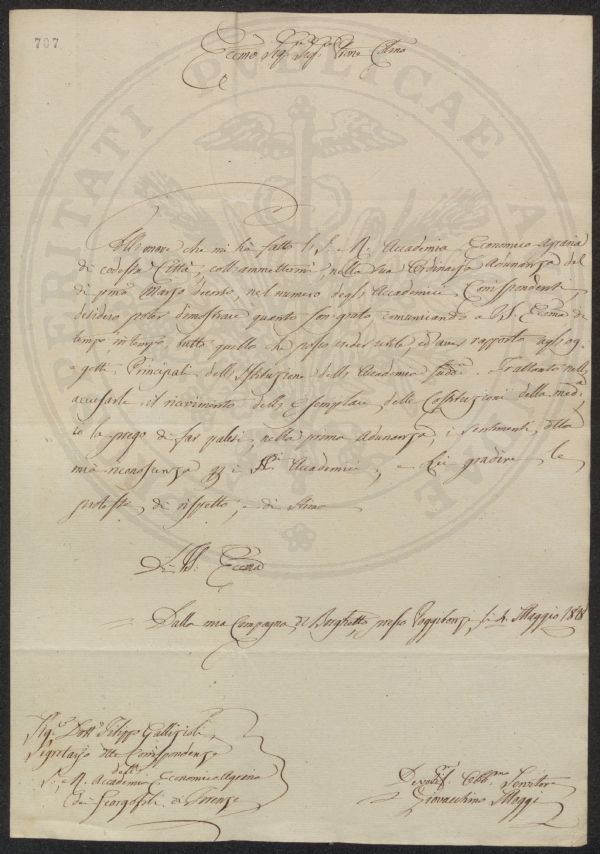 707
Ecc.mo Sig.re Sig.re P.rone Col.mo
All'onore che mi ha fatto la I. e R. Accademia Economico Agraria
di codesta Città, coll'ammettermi nella sua Ordinaria Adunanza del
dì primo Marzo decorso, nel numero degli Accademici Corrispondenti,
desidero poter dimostrare quanto son grato comunicando a V.S. Ecc.ma di
tempo in tempo, tutto quello che posso creder utile, ed aver rapporto agli og-
getti Principali dell'Istituzione dell'Accademia sud.a. Frattanto nell'
accusarle il ricevimento dell'Esemplare delle Costituzioni della med.a
io la prego di far palesi, nella prima Adunanza, i sentimenti della
mia riconoscenza i Accademici, e Lei gradire le
proteste di rispetto, e di stima
Di V.S. Ecc.ma
Dalla mia Campagna di Borghetto presso Poggibonsi li 4. Maggio 1818
Sig.re Dott.re Filippo Gallizioli
Segretario delle Corrispondenze
dell'
I. e R. Accademia Economico Agraria
dei Georgofili di Firenze
Devotis.mo Obb.mo Servitore
Giovacchino Maggi
PROSPERITATI PUBLICAE AUGENDAE